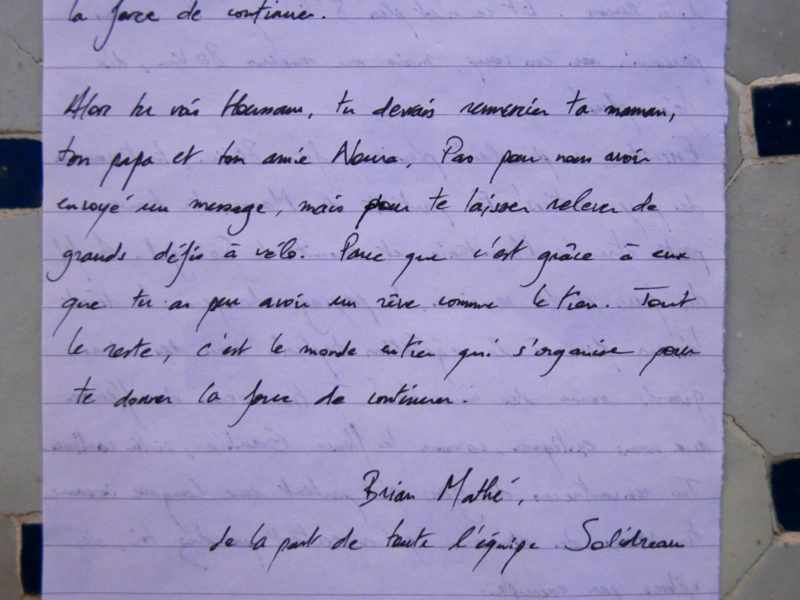 la force de continuer.
Alors tu vois Houssam, tu devrais remercier ta maman,
ton papa et ton amie Noura. Pas pour nous avoir
envoyé un message, mais pour te laisser relever de
grands défis à vélo. Parce que c'est grâce à eux
que tu as pu avoir un rêve comme le tien. Tout
le reste, c'est le monde entier qui s'organise pour
te donner la force de continuer.
Brian Mathé,
de la part de toute l'équipe Solidream